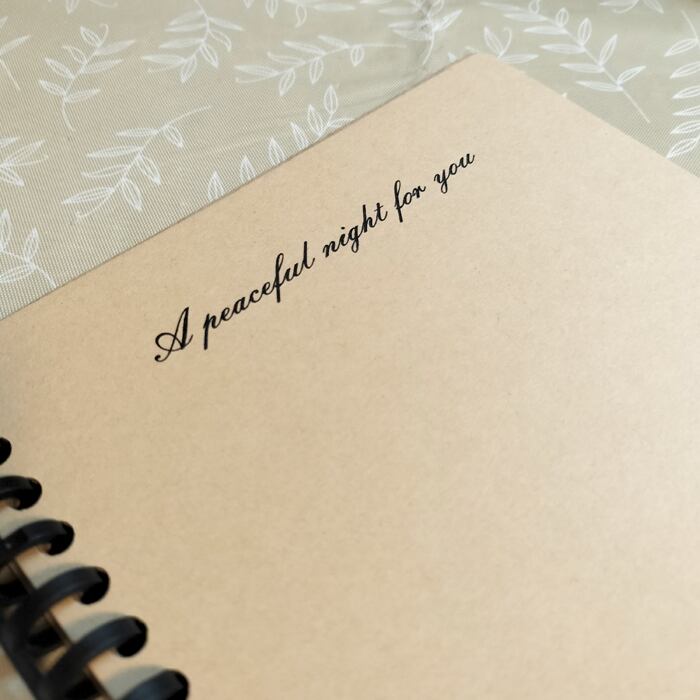 A peaceful night for you